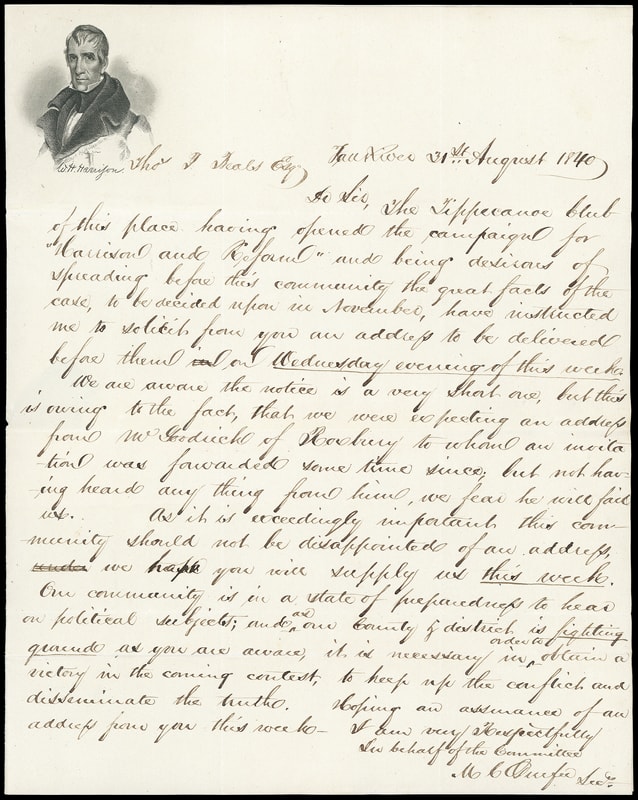 W. H. Harrison
Thos T Esq
Fall River 31st. August 1840
Dr Sir, The Tippecanoe Club
of this place having opened the campaign for
"Harrison and Reform" and being desirous of
spreading before this community the great facts of the
case, to be decided upon in November, have instructed
me to solicit from you an address to be delivered
before them in on Wednesday evening of this week.
We are aware the notice is a very short one, but this
is owing to the fact, that we were expecting an address
from Mr Goodrich of Roxbury to whom an invita
-tion was forwarded some time since; but not hav-
-ing heard any thing from him, we fear he will fail
us. As it is exceedingly important this com-
-munity should not be disappointed of an address,
we hope you will supply us this week.
Our community is in a state of preparedness to hear
on political subjects; and as our County & district is fighting
ground as you are aware, it is necessary in order to obtain a
victory in the coming contest, to keep up the conflict and
disseminate the truth. Hoping an assurance of an
address from you this week-
I am very Respectfully
In behalf of the Committee
M C Secy